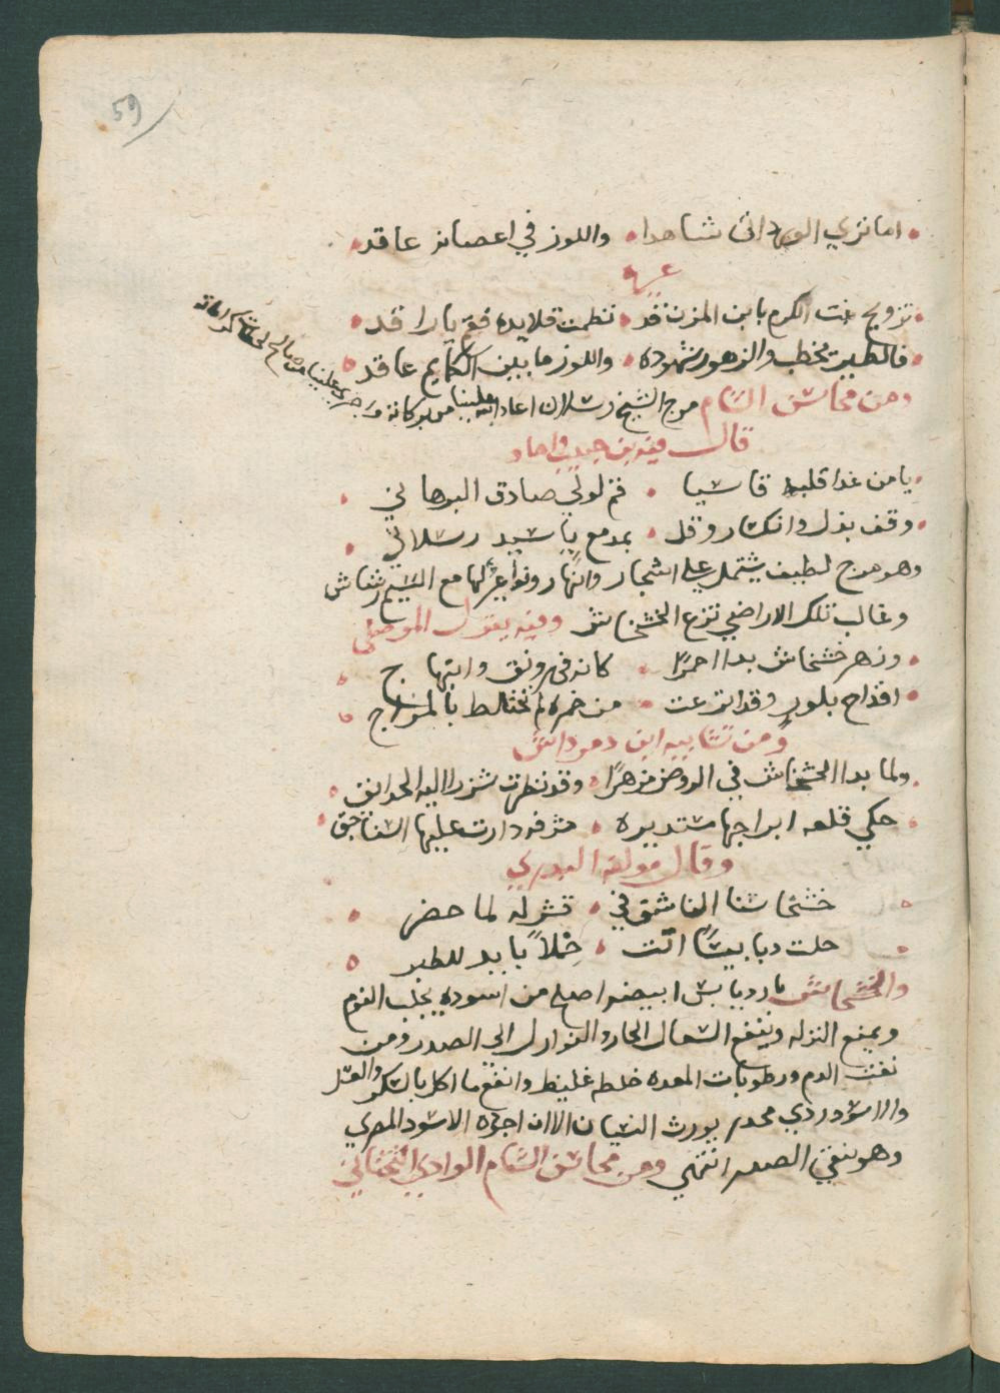 59
اما تري الورد اتى شاهدا واللوز في اغصانه عاقد
غيره
تزويج بنت الكرم بابن المزن قد نظمت قلايده فقم يا راقد
فالطير يخطب والزهور شهوده واللوز ما بين الكمايم عاقد
ومن محاسن الشام مرج الشيخ رسلان اعاد الله علينا من بركاته واجري علينا من صالح
قال فيه بن حبيب واجاد
يا من غدا قلبه قاسيا قم لولي صادق البرهاني
وقف بذل وانكسار وقل بمدمع يا سيد رسلاني
وهو مرج لطيف يشتمل علي اشجار وانهار ونواعير لها مع النسيم رشاش
وغالب تلك الاراضي تزرع الخشخاش وفيه يقول الموصلي
وزهر خشخاش بدا احمرا كانه في رونق وابتهاج
اقداح بلور وقد اترعت من خمرة لم تختلط بالمزاج
ومن تشابيه ابن دمرداش
ولما بدا الخشخاش في الروض مزهرا وقد نظرت شزرا اليه الحدايق
حكي قلعه ابراجها مستديره مشرفه دارت عليها السناجق
وقال مولفه البدري
خشخاشنا الناشق في قشر له لما حضر
حلت دبابيسا اتت
والخشخاش بارد يابس ابيضه اصلح من اسوده يجلب النوم
ويمنع النزله وينفع السعال الحار والنوازل الي الصدر ومن
نفث الدم ورطوبات المعده خلطه غليظ وانفع ما اكل بالسكر والعسل
والاسود ردي مخدر يورث النسيان الا ان اجوده الاسود المصري
وهو ينقي الصدر انتهي ومن محاسن الشام الوادي التحتاني